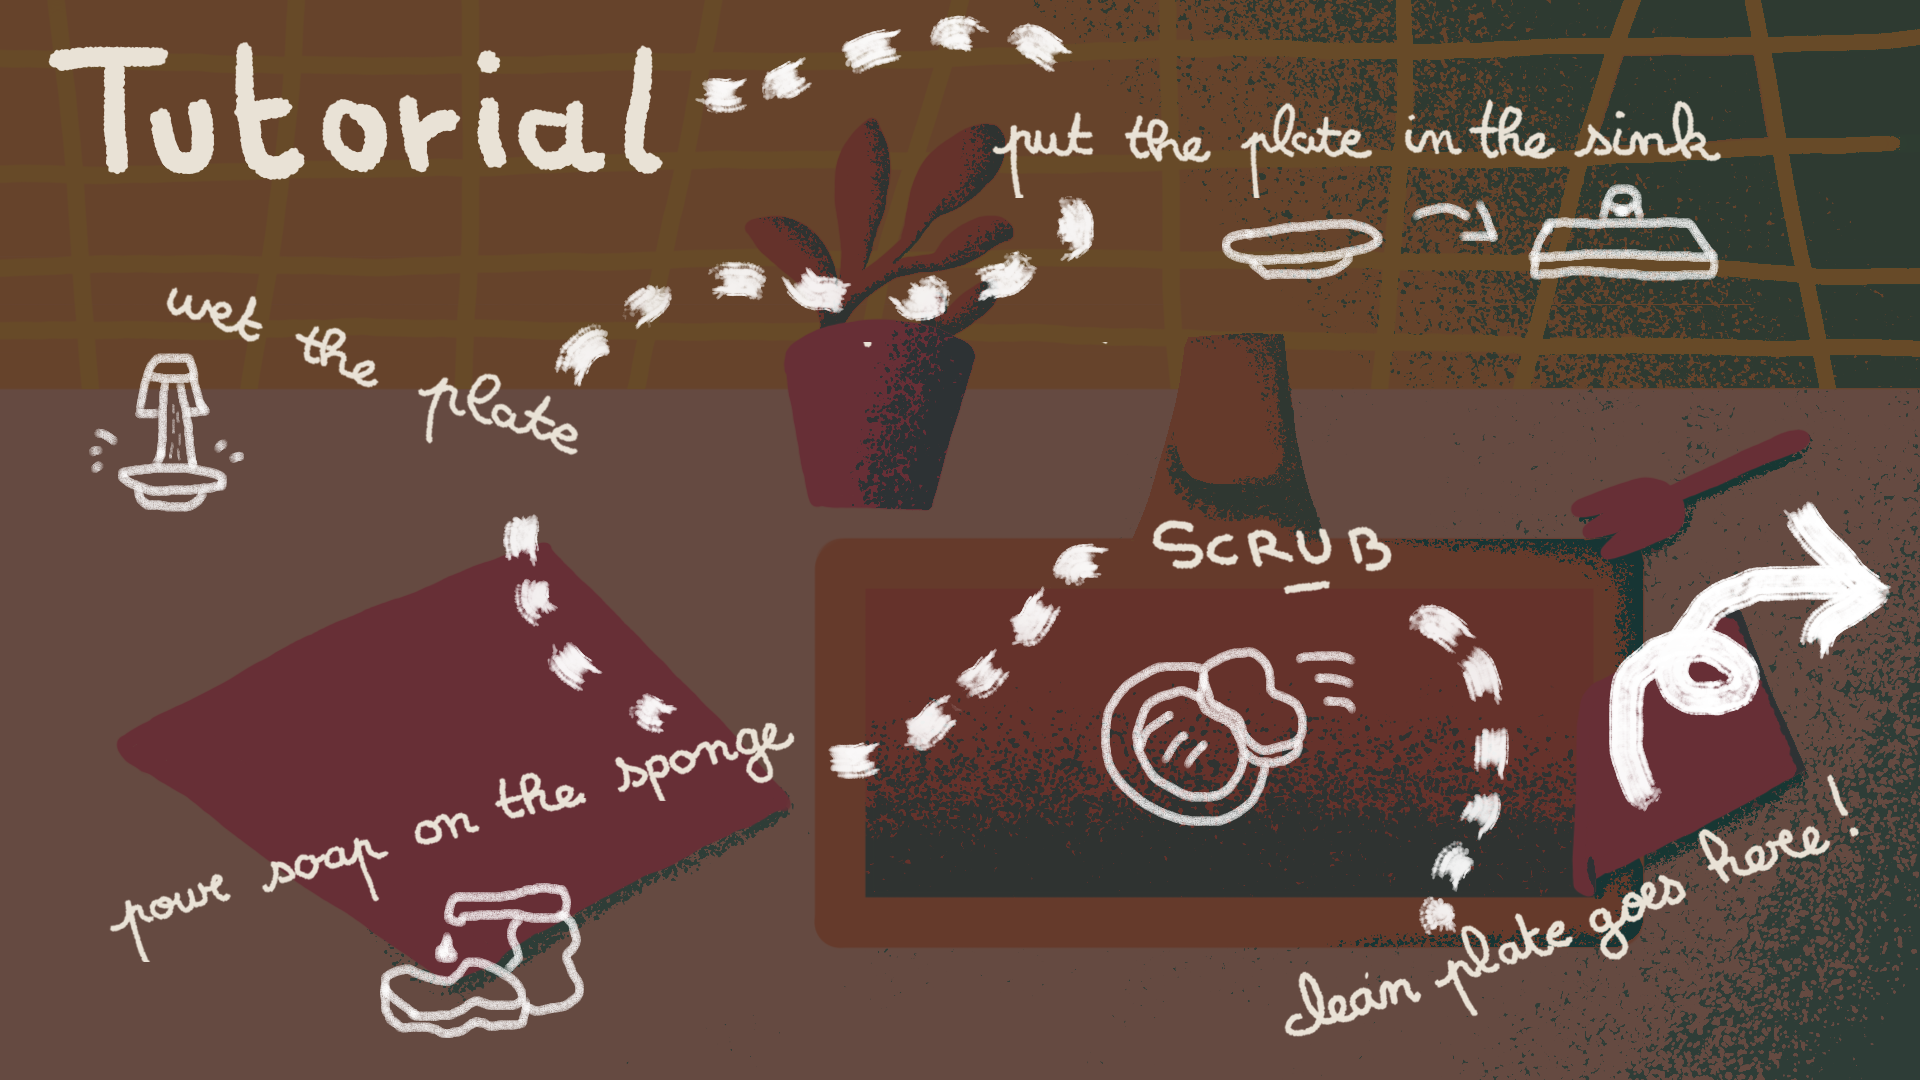 Tutorial
put the plate in the sink
wet the plate
pour soap on the sponge
SCRUB
clean plate goes here!